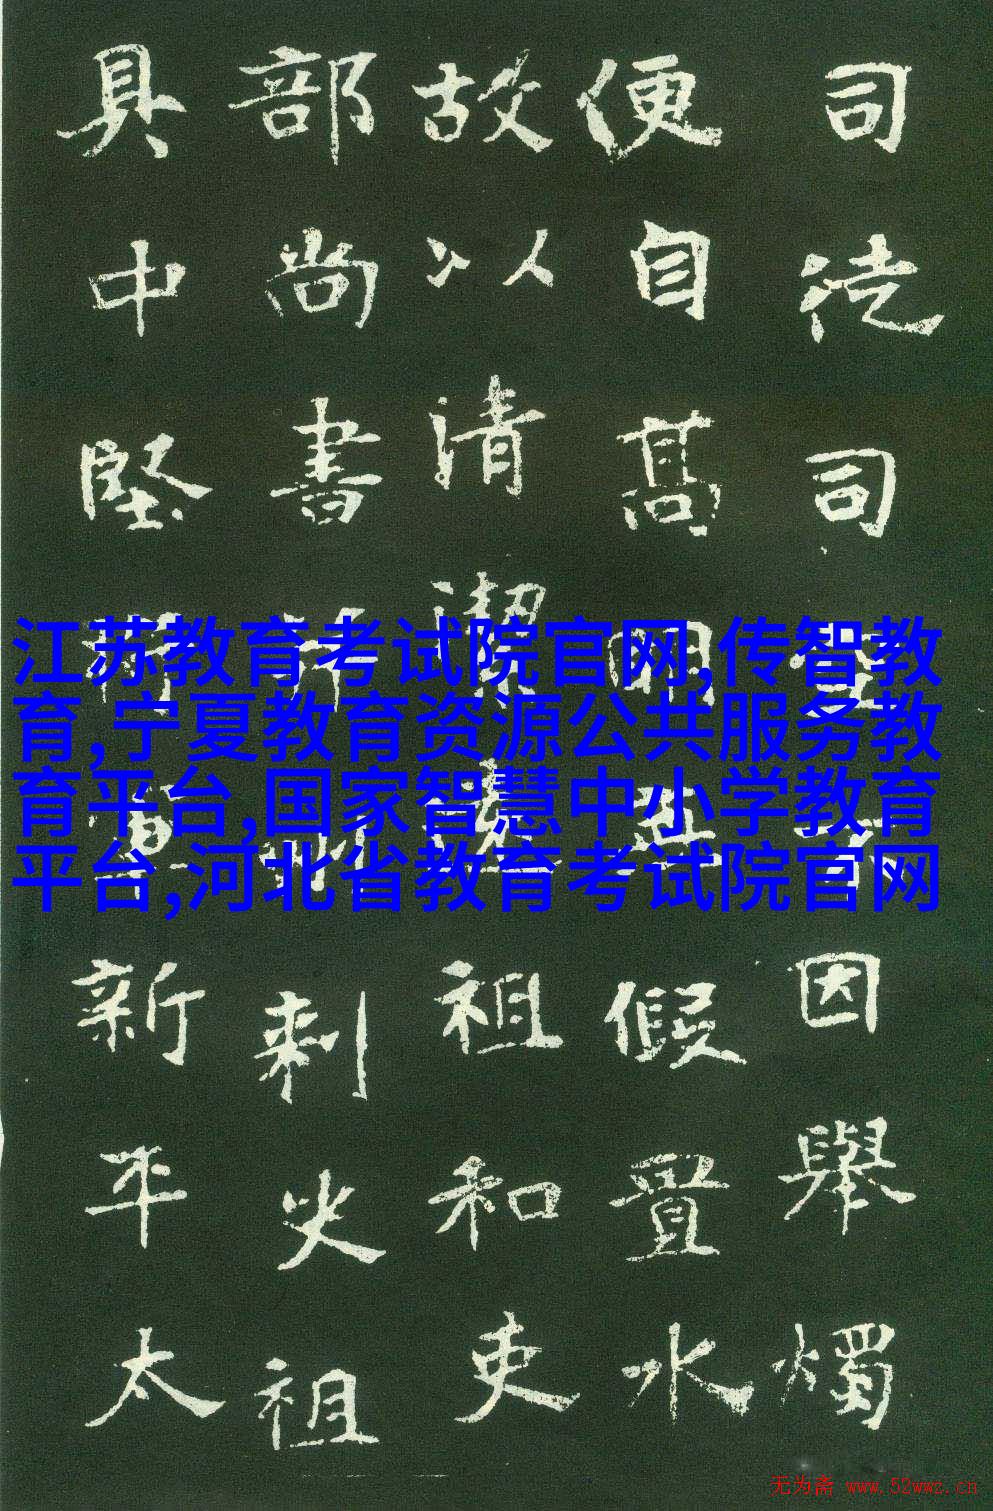 司徒司因舉燭
便自高假置水
故以清潔祖和吏
部尚書刺史祖
具中堅新平太
江苏教育考试院官网,传智教
育,宁夏教育资源公共服务教
育平台,国家智慧中小学教育
平台,河北省教育考试院官网
无为斋 www.52wwz.cn